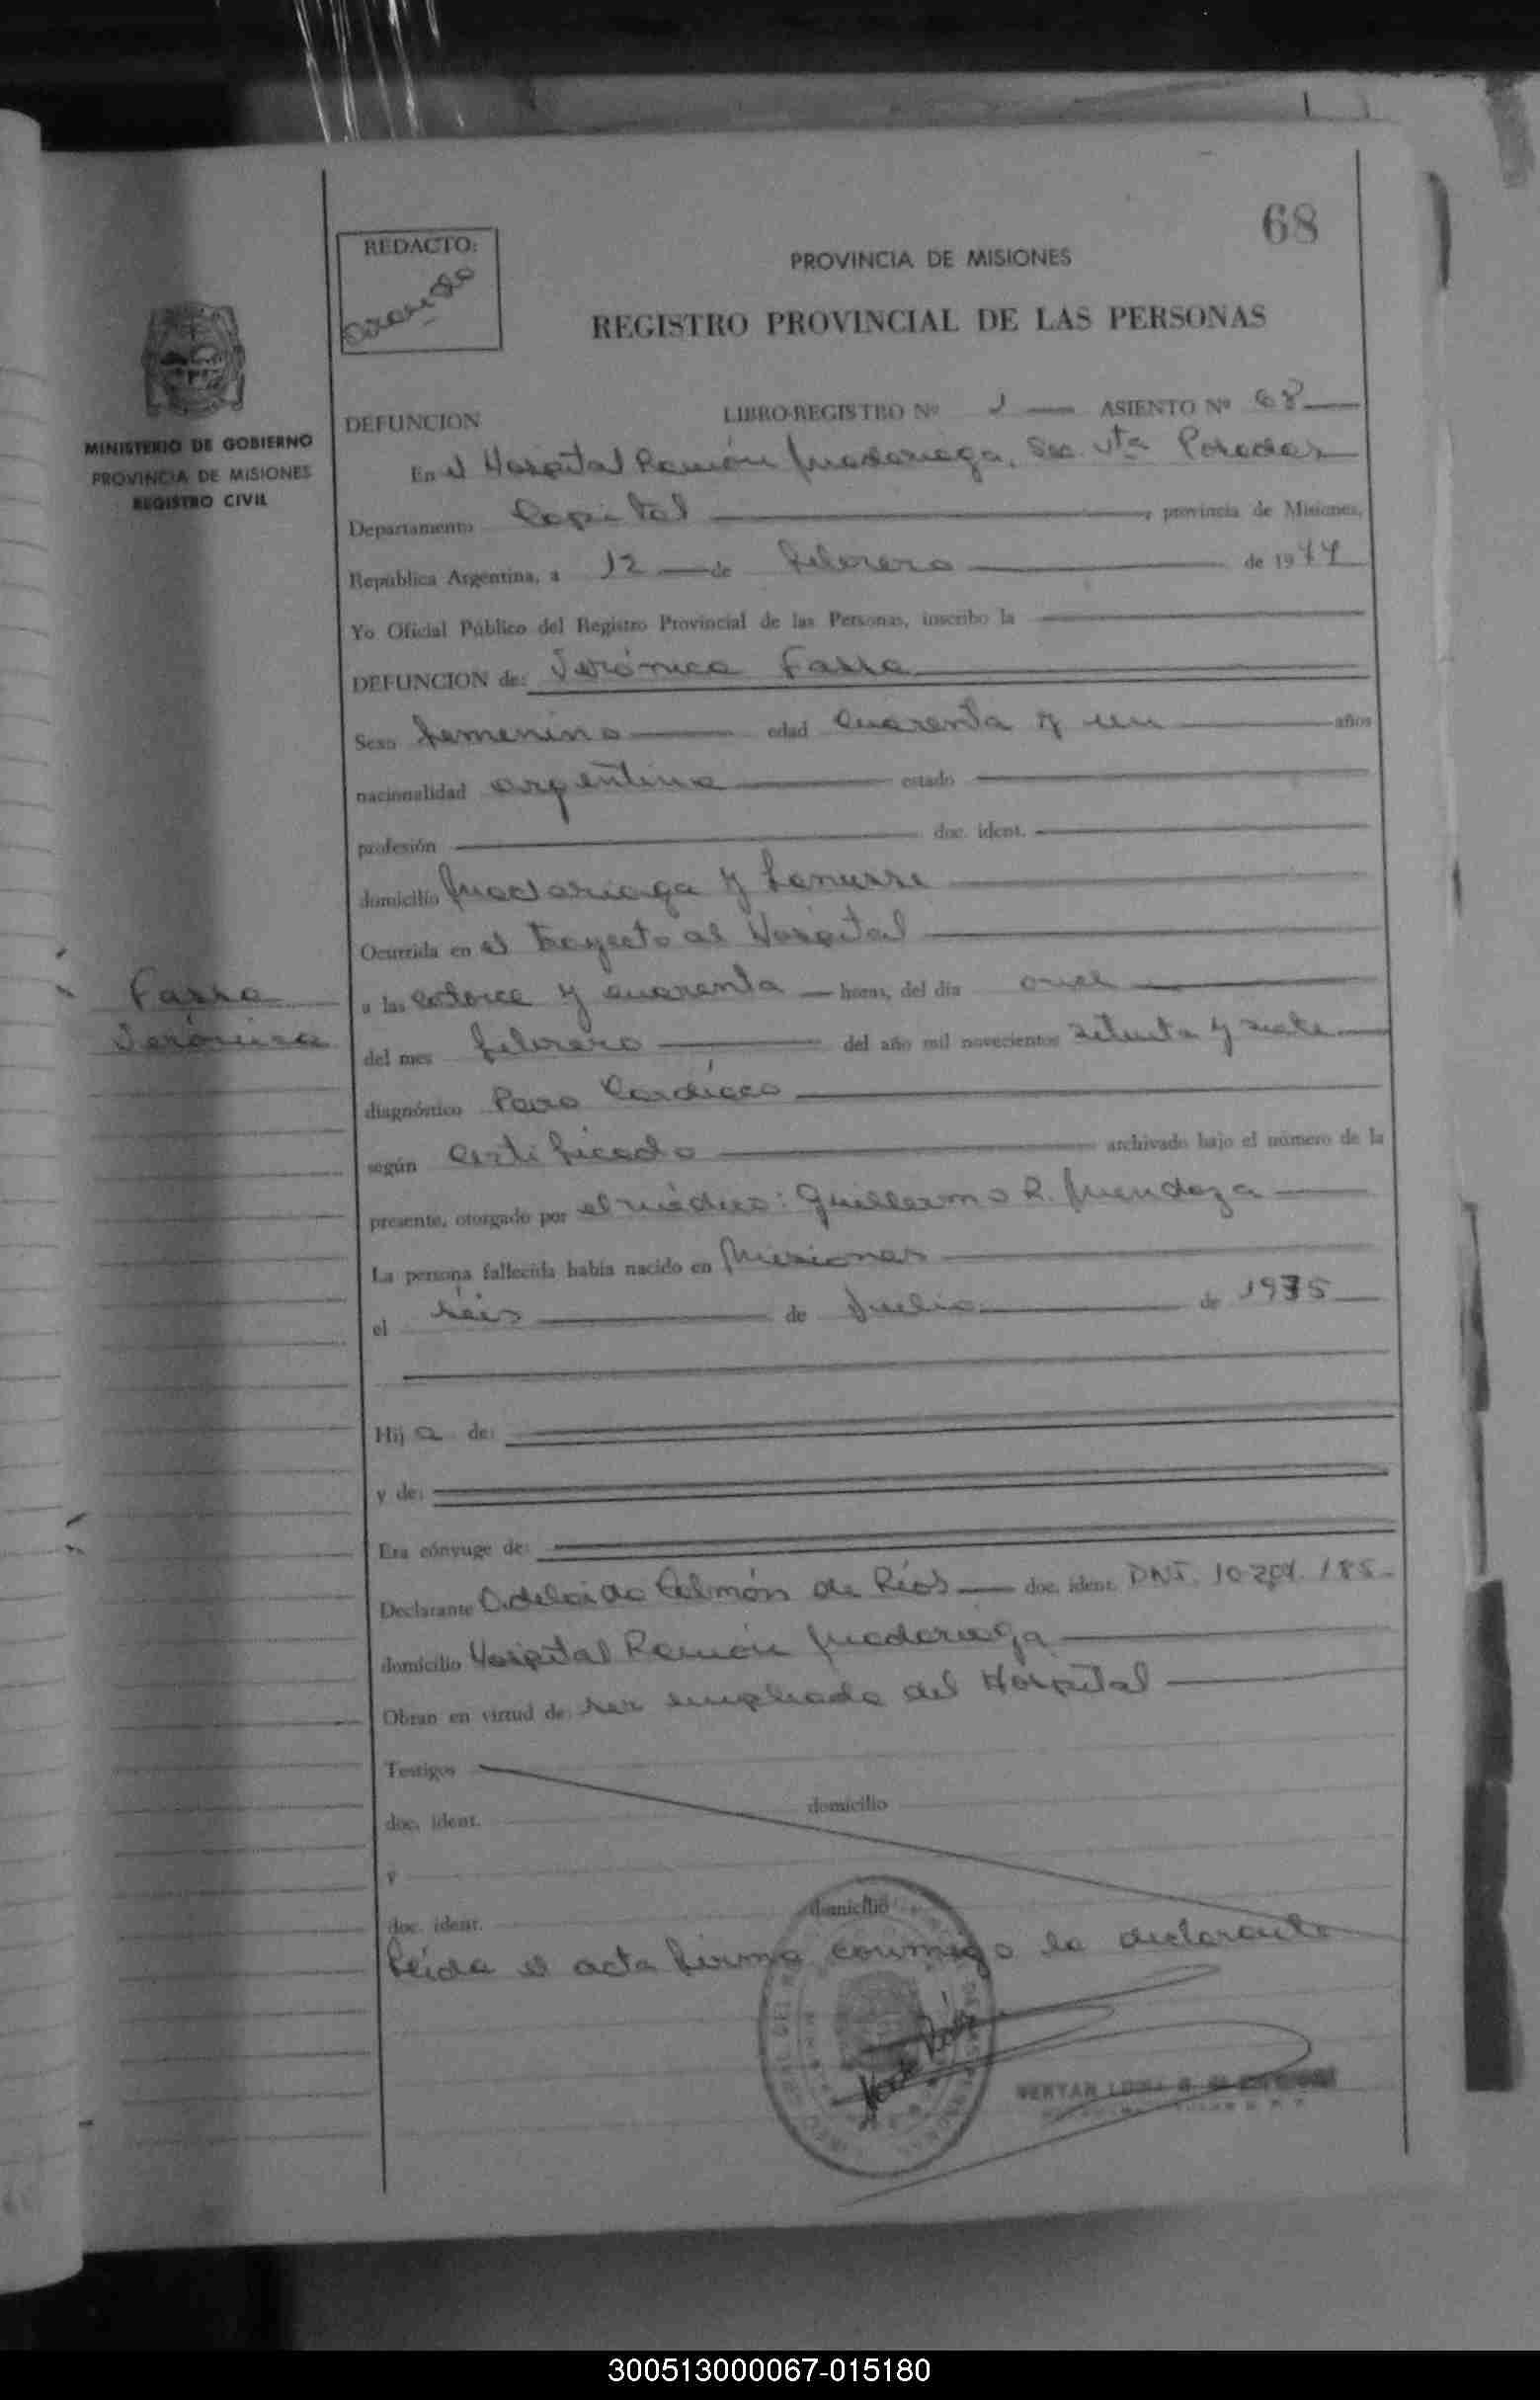 68
REDACTO:
PROVINCIA DE MISIONES
REGISTRO PROVINCIAL DE LAS PERSONAS
MINISTERIO DE GOBIERNO
PROVINCIA DE MISIONES
REGISTRO CIVIL
DEFUNCION LIBRO-REGISTRO Nº 1 ASIENTO Nº 68
En el Hospital Ramón Madariaga, Sec. Vta Posadas
Departamento Capital, provincia de Misiones,
República Argentina, a 12 de febrero de 1977
Yo Oficial Público del Registro Provincial de las Personas, inscribo la
DEFUNCION de: Verónica
Sexo femenino edad cuarenta y un años
nacionalidad argentina estado
profesión doc. ident.
domicilio Madariaga y Lanusse
Ocurrida en el trayecto al Hospital
Verónica
a las catorce y cuarenta horas, del día once
del mes febrero del año mil novecientos setenta y siete
diagnóstico Paro Cardíaco
según certificado archivado bajo el número de la
presente, otorgado por el médico: Guillermo R. Mendoza
La persona fallecida había nacido en Misiones
el seis de Julio de 1935
Hij a de:
y de:
Era cónyuge de:
Declarante Adelaida de Ríos doc. ident. DNI. 10.207.185
domicilio Hospital Ramón Madariaga
Obran en virtud de: ser empleada del Hospital
Testigos
doc. ident. domicilio
y
doc. ident. domicilio
Leída el acta firma conmigo la declarante
300513000067-015180